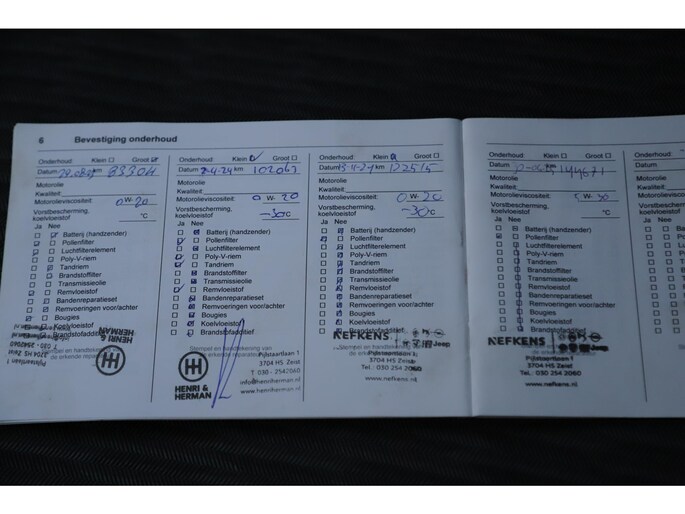 6 Bevestiging onderhoud
Onderhoud: Klein Groot
Datum km 83304
Motorolie
Kwaliteit:
Motorolieviscositeit: 0 W- 20
Vorstbescherming,
koelvloeistof °C
Ja Nee
Batterij (handzender)
Pollenfilter
Luchtfilterelement
Poly-V-riem
Tandriem
Brandstoffilter
Transmissieolie
Remvloeistof
Bandenreparatieset
Remvoeringen voor/achter
Bougies
Koelvloeistof
Brandstofadditief
HENRI &
HERMAN
Pijlstaartlaan 1
3704 HS Zeist
T 030 - 2542060
Onderhoud: Klein Groot
Datum 2-4-24 km 102063
Motorolie
Kwaliteit:
Motorolieviscositeit: 0 W- 20
Vorstbescherming,
koelvloeistof -30°C
Ja Nee
Batterij (handzender)
Pollenfilter
Luchtfilterelement
Poly-V-riem
Tandriem
Brandstoffilter
Transmissieolie
Remvloeistof
Bandenreparatieset
Remvoeringen voor/achter
Bougies
Koelvloeistof
Brandstofadditief
Stempel en handtekening van
de erkende reparateur
HENRI &
HERMAN
Pijlstaartlaan 1
3704 HS Zeist
T 030 - 2542060
info@henriherman.nl
www.henriherman.nl
Onderhoud: Klein Groot
Datum km 122515
Motorolie
Kwaliteit:
Motorolieviscositeit: 0 W- 20
Vorstbescherming,
koelvloeistof -30°C
Ja Nee
Batterij (handzender)
Pollenfilter
Luchtfilterelement
Poly-V-riem
Tandriem
Brandstoffilter
Transmissieolie
Remvloeistof
Bandenreparatieset
Remvoeringen voor/achter
Bougies
Koelvloeistof
Brandstofadditief
NEFKENS Jeep
Pijlstaartlaan 1
3704 HS Zeist
Tel.: 030 254 2060
www.nefkens.nl
Onderhoud: Klein Groot
Datum km 144671
Motorolie
Kwaliteit:
Motorolieviscositeit: W- 30
Vorstbescherming,
koelvloeistof °C
Ja Nee
Batterij (handzender)
Pollenfilter
Luchtfilterelement
Poly-V-riem
Tandriem
Brandstoffilter
Transmissieolie
Remvloeistof
Bandenreparatieset
Remvoeringen voor/achter
Bougies
Koelvloeistof
Brandstofadditief
NEFKENS Jeep
Pijlstaartlaan 1
3704 HS Zeist
Tel.: 030 254 2060
www.nefkens.nl